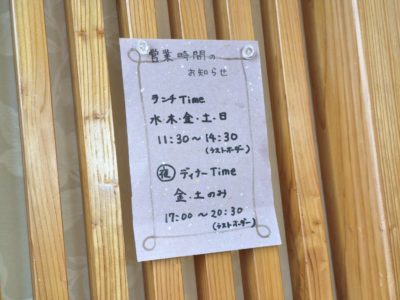 営業時間の
お知らせ
ランチTime
水・木・金・土・日
11:30～14:30
(ラストオーダー)
夜 ディナーTime
金・土のみ
17:00～20:30
(ラストオーダー)